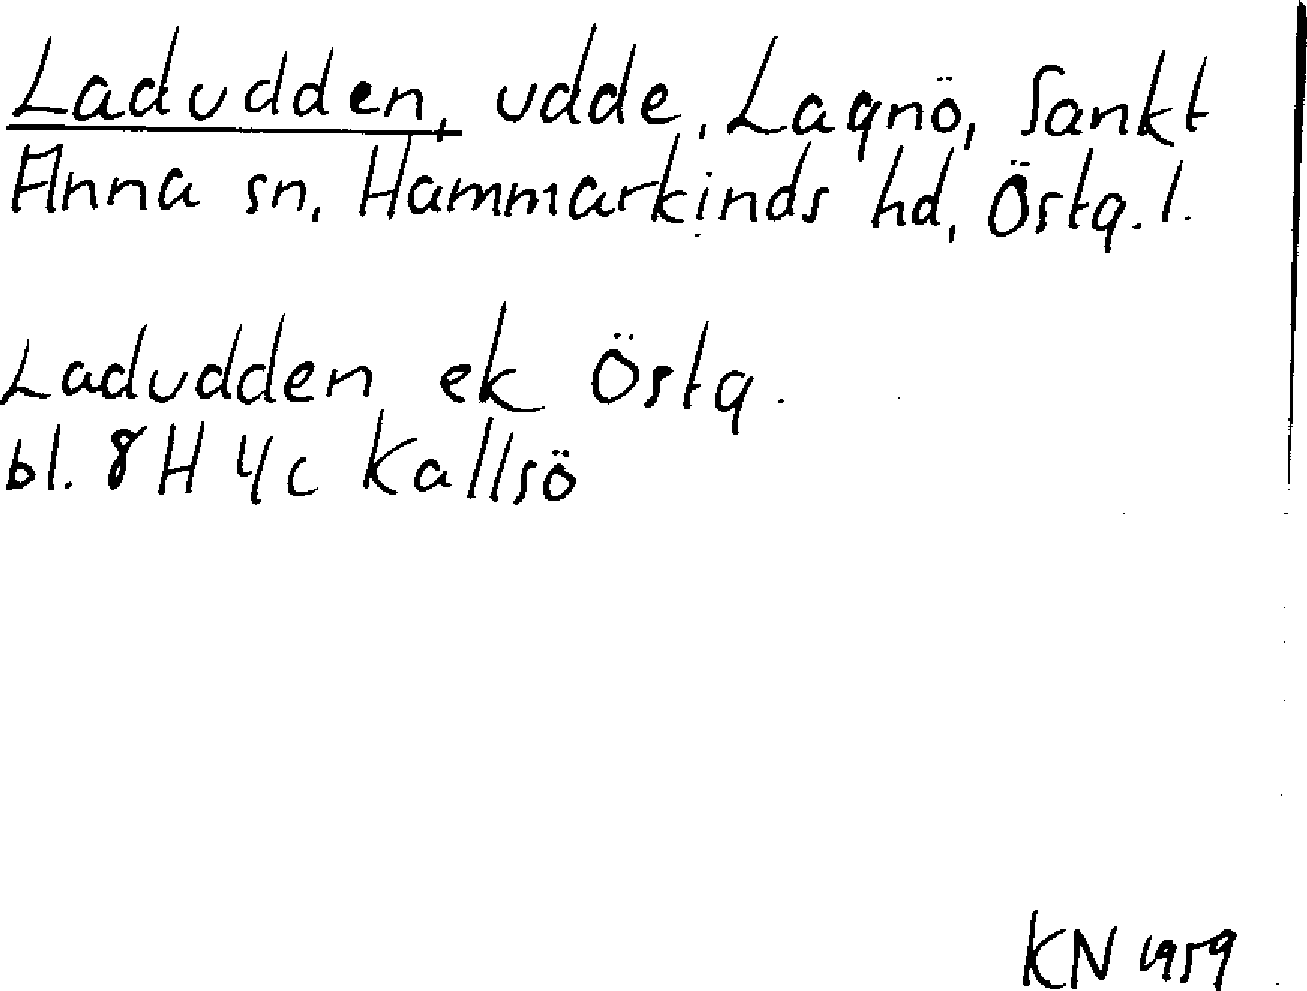 Ladudden, udde, Lagnö, Sankt
Anna sn, Hammarkinds hd, Östg. l.
Ladudden ek Östg.
bl. 8H 4c Kallsö
KN 1959